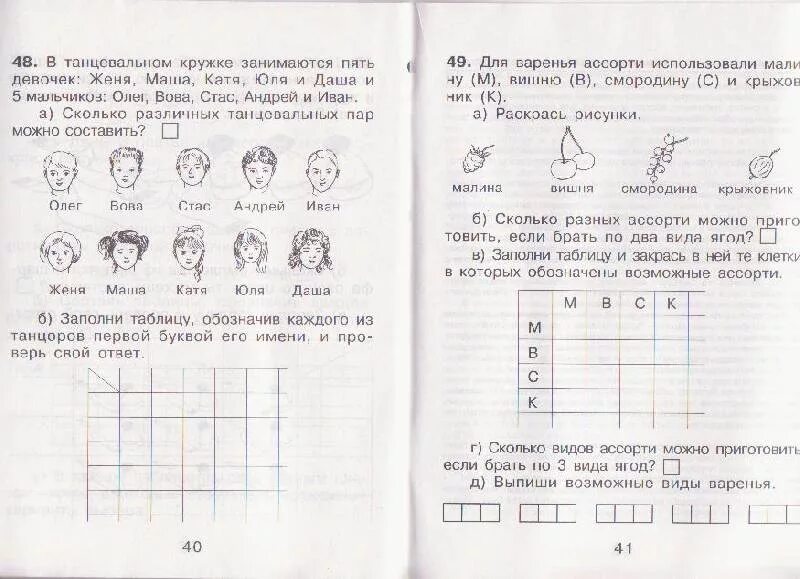 48. В танцевальном кружке занимаются пять
девочек: Женя, Маша, Катя, Юля и Даша и
5 мальчиков: Олег, Вова, Стас, Андрей и Иван.
а) Сколько различных танцевальных пар
можно составить?
Олег Вова Стас Андрей Иван
Женя Маша Катя Юля Даша
б) Заполни таблицу, обозначив каждого из
танцоров первой буквой его имени, и про-
верь свой ответ.
40
49. Для варенья ассорти использовали мали
ну (М), вишню (В), смородину (С) и крыжов
ник (К).
а) Раскрась рисунки.
малина вишня смородина крыжовник
б) Сколько разных ассорти можно приго
товить, если брать по два вида ягод?
в) Заполни таблицу и закрась в ней те клетки
в которых обозначены возможные ассорти.
М В С К
М
В
С
К
г) Сколько видов ассорти можно приготовить
если брать по 3 вида ягод?
д) Выпиши возможные виды варенья.
41